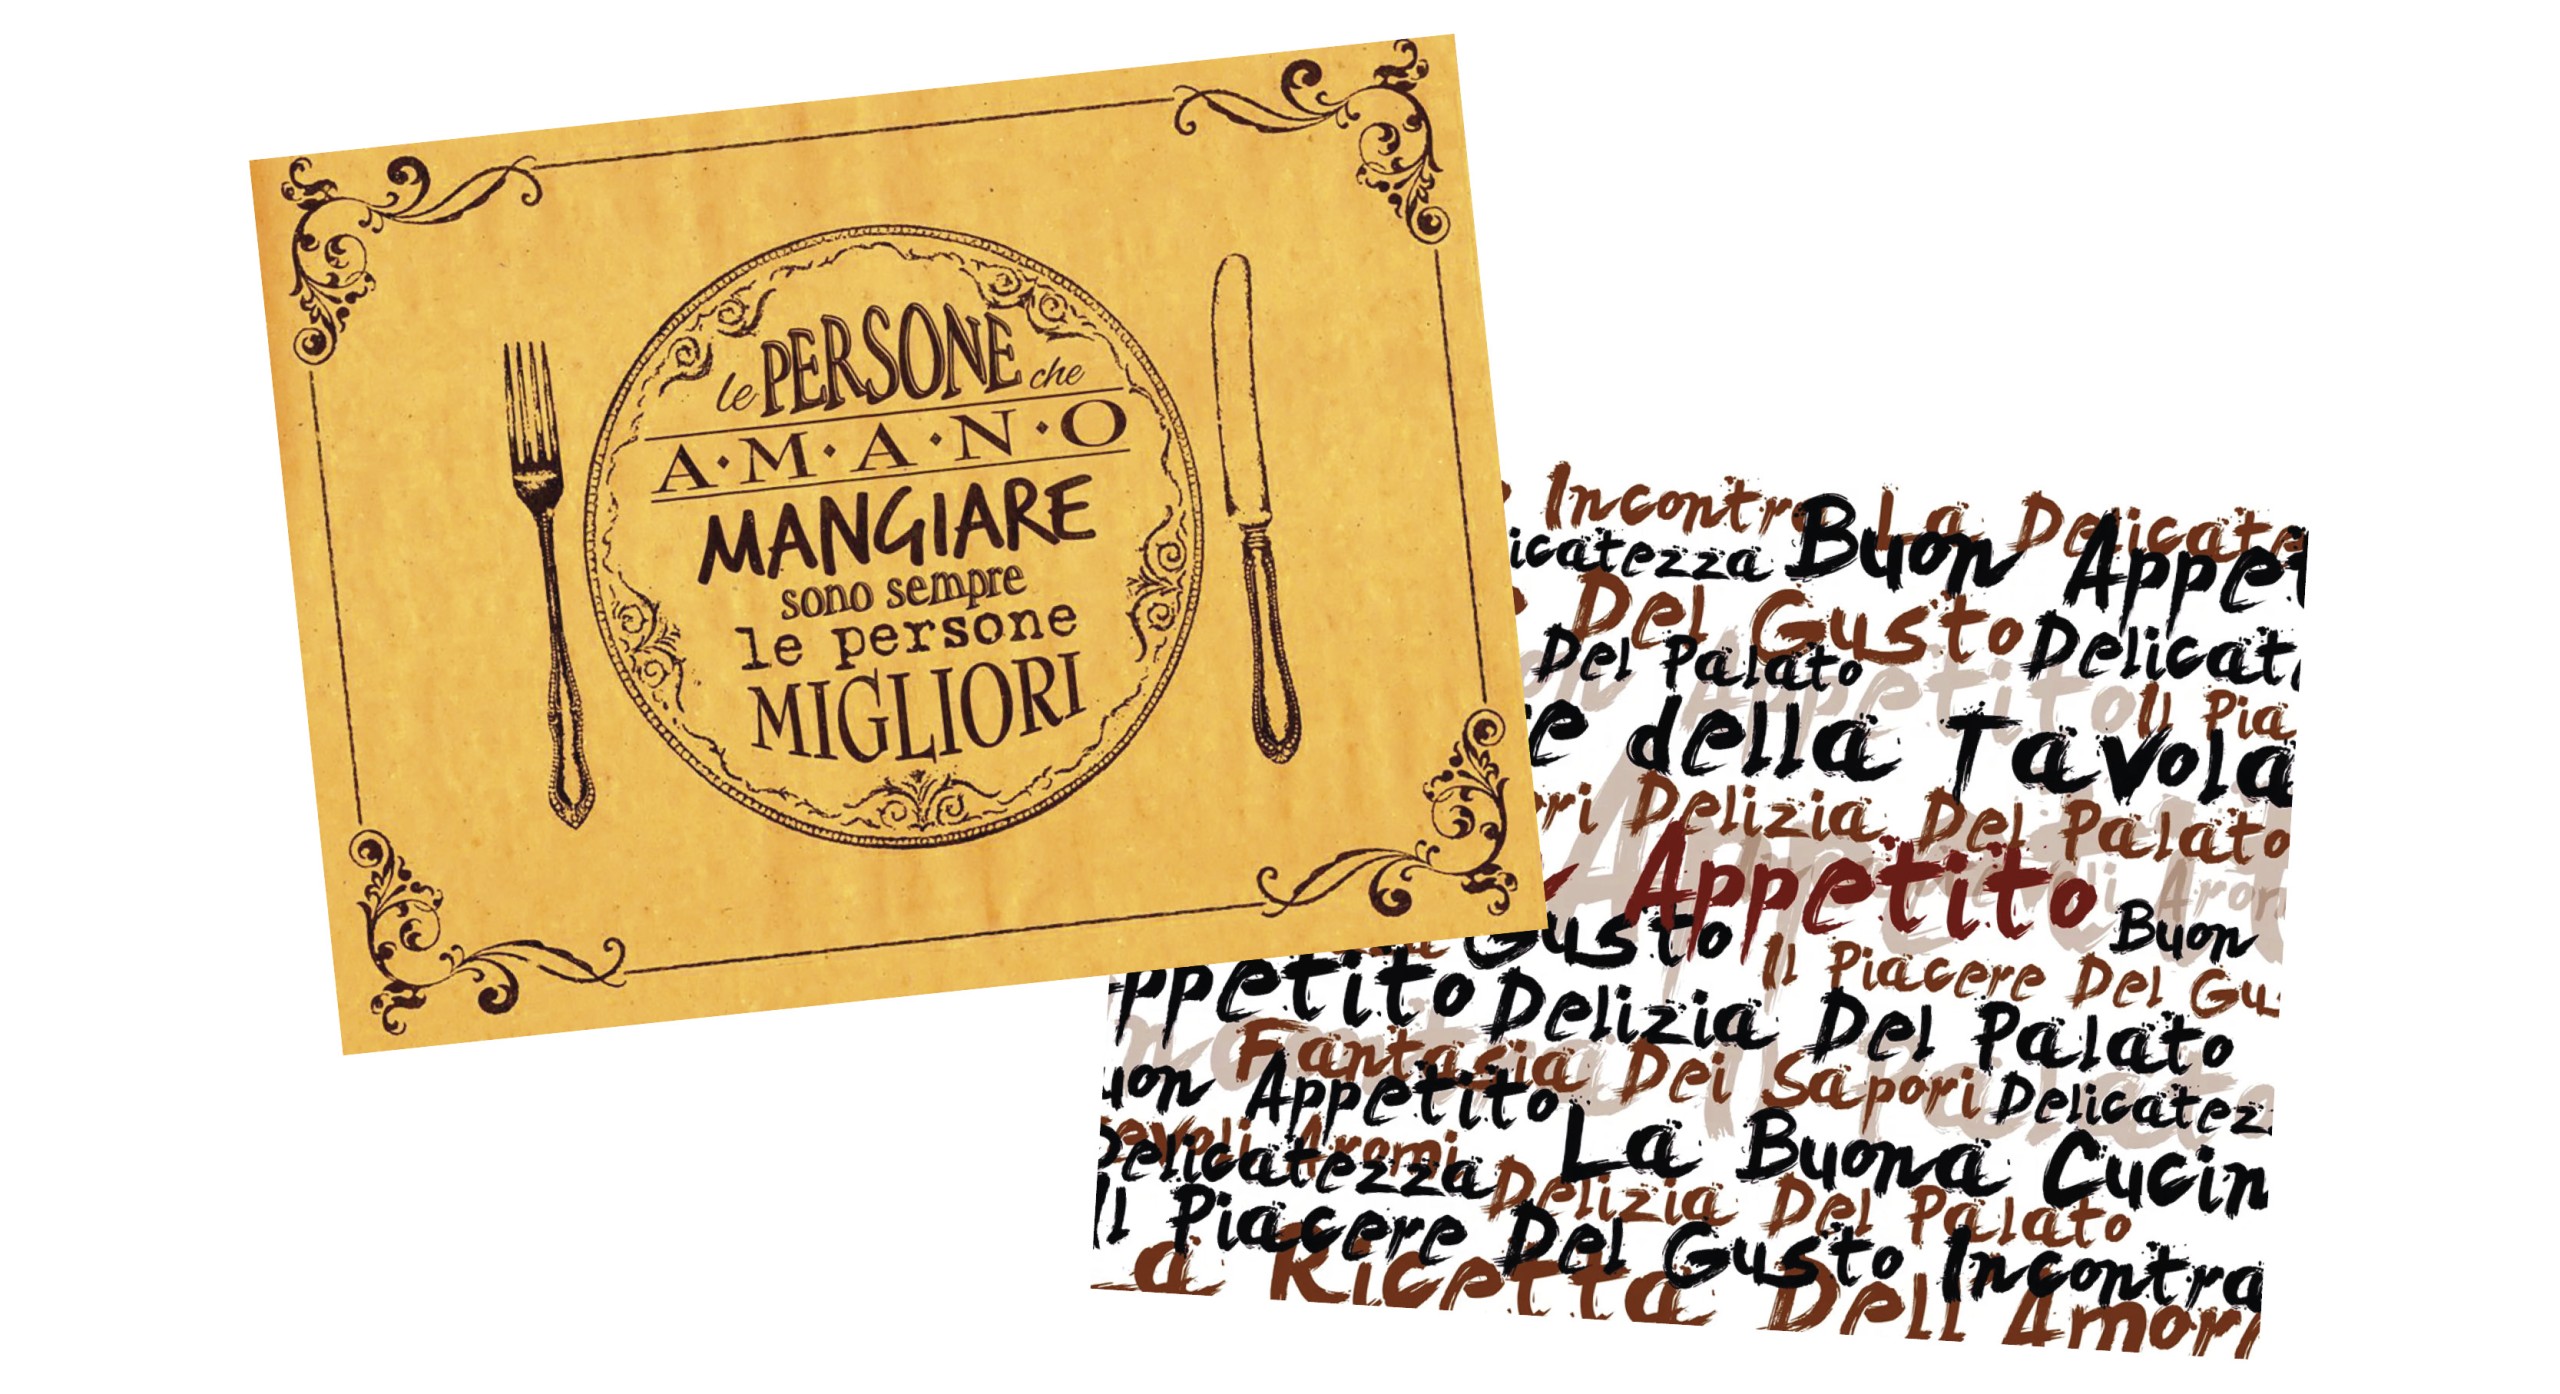 le PERSONE che
A·M·A·N·O
MANGIARE
sono sempre
le persone
MIGLIORI
Incontr La Delicate
icatezza Buon Appet
Del Gusto
Del Palato Delicat
Appetito Il Pia
e della Tavola
ri Delizia Del Palato
Appetito
Gusto Buon
Il Piacere Del Gu
ppetito Delizia Del Palato
Fantasia Dei Sapori
uon Appetito Delicatez
evoli Aromi
Delicatezza La Buona Cucin
Delizia Del Palato
Il Piacere Del Gusto Incontra
a Ricetta Dell Amor